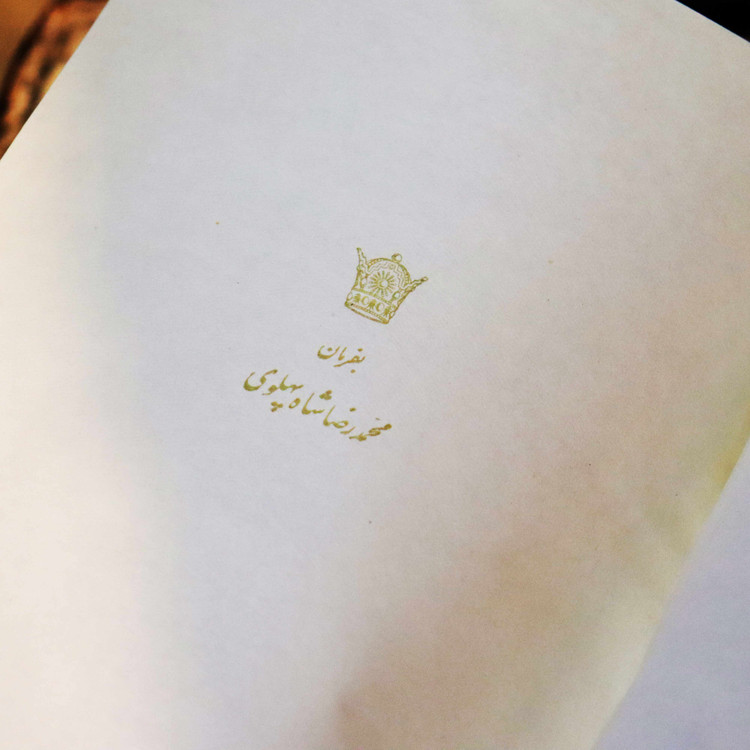 بفرمان
محمدرضا شاه پهلوی